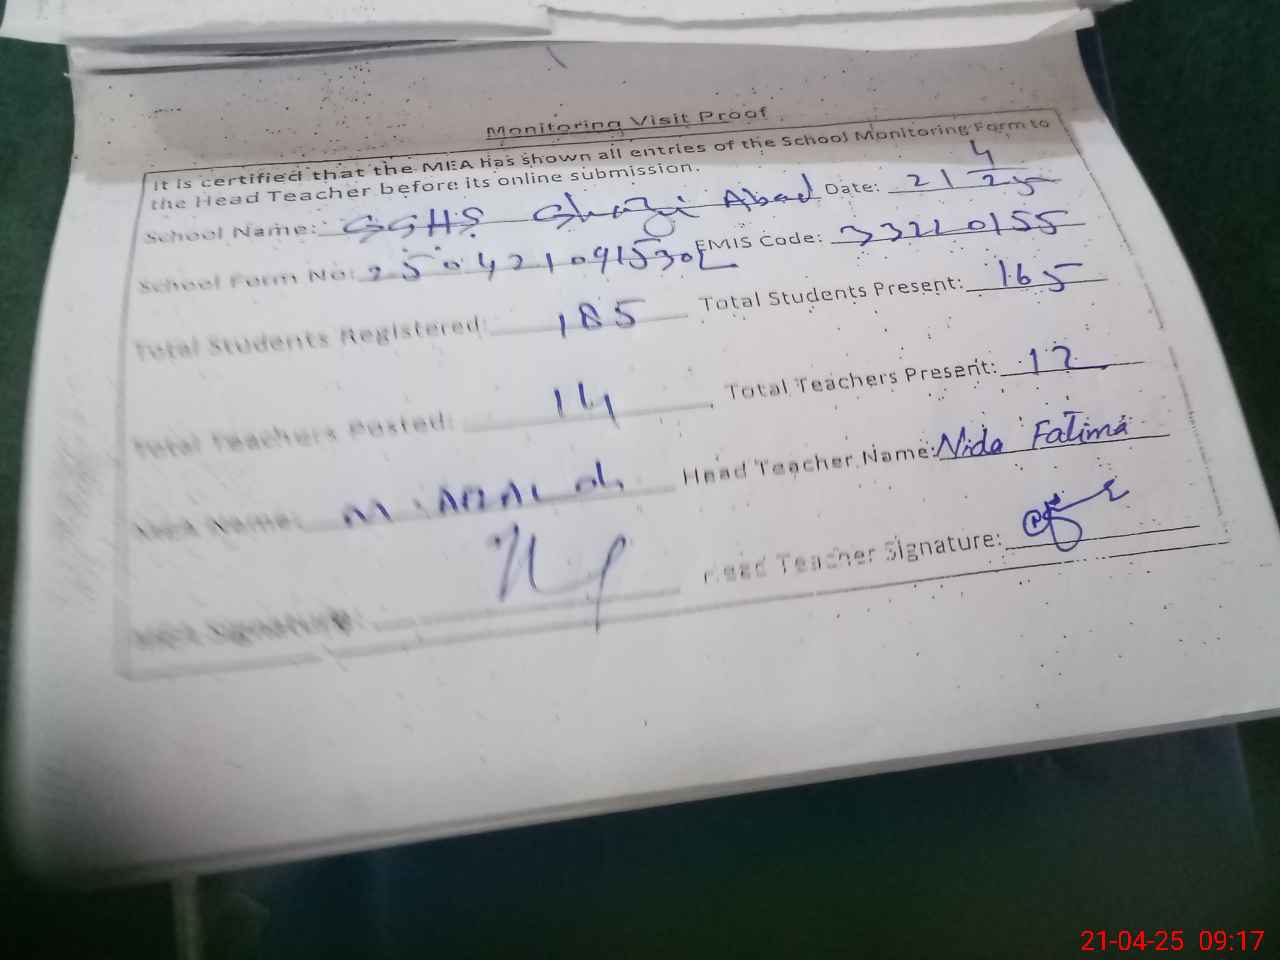 Monitoring Visit Proof
It is certified that the MEA has shown all entries of the School Monitoring Form to
the Head Teacher before its online submission.
School Name: GGHS Ghazi Abad Date: 21/4/25
School Form No: EMIS Code: 33220155
Total Students Registered: 185 Total Students Present: 165
Total Teachers Posted: 14 Total Teachers Present: 12
MEA Name: M. Head Teacher Name: Nida Fatima
MEA Signature: Head Teacher Signature:
21-04-25 09:17